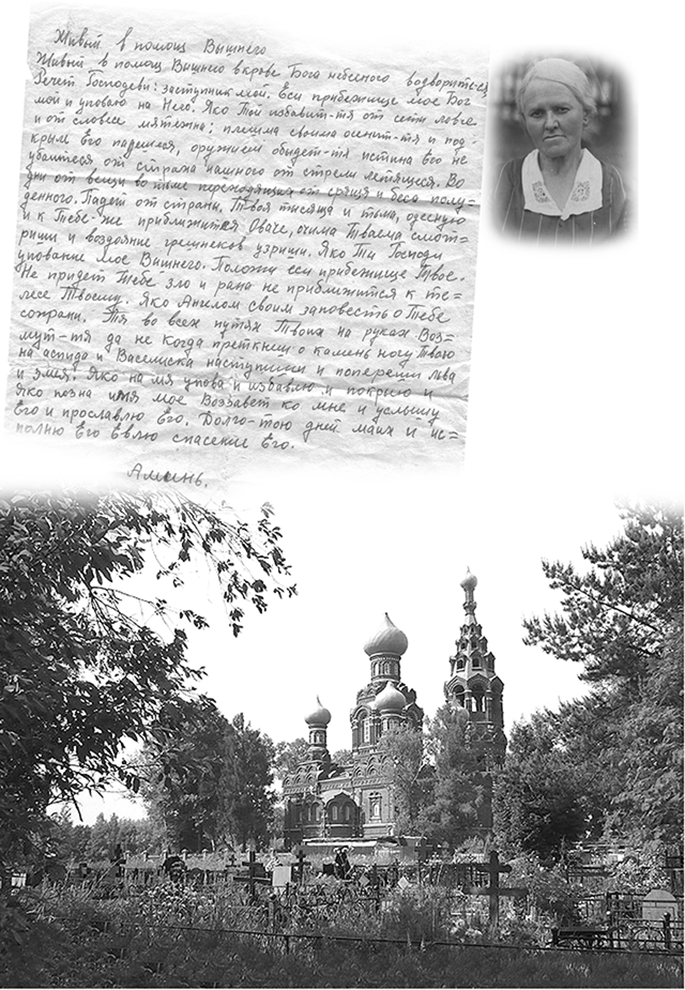 Живый в помощ Вышнего
Живый в помощ Вышнего вкрове Бога небесного водворится
Речет Господеви: заступник мой. Еси прибежище мое Бог
мои и уповаю на Него. Яко Той избавит-тя от сети ловче
и от словесе мятежна; плещма своима осенит-тя и под-
крыле Его надеешся, оружием обыдет-тя истина Его не
убаитеся от страха нашного от стрели летящеся. Во
дни от вещи во тме переходящия от сряща и беса полу-
денного. Падет от страни. Твоя тисяща и тьма, одесную
и к Тебе-же приближится Оваче, очима Тваема смот-
риши и воздояние грешнеков узриши. Яко Ти Господи
упование мое Вишнего. Положи еси прибежище Твое.
Не придет Тебе зло и рана не приближится к те=
лесе Твоему. Яко Ангелом своим заповесть о Тебе
сохрани. Тя во всех путях Твоих на руках Воз=
мут-тя да не когда преткнеш о камень ногу Твою
на аспида и Василиска наступиши и попереши льва
и змея. Яко на мя упова и избавлю и покрыю и
яко позна имя мое Воззавет ко мне и услышу
Его и прославлю Его. Долго-тою дней маих и ис=
полню Его Евлю спасение Его.
Аминь.